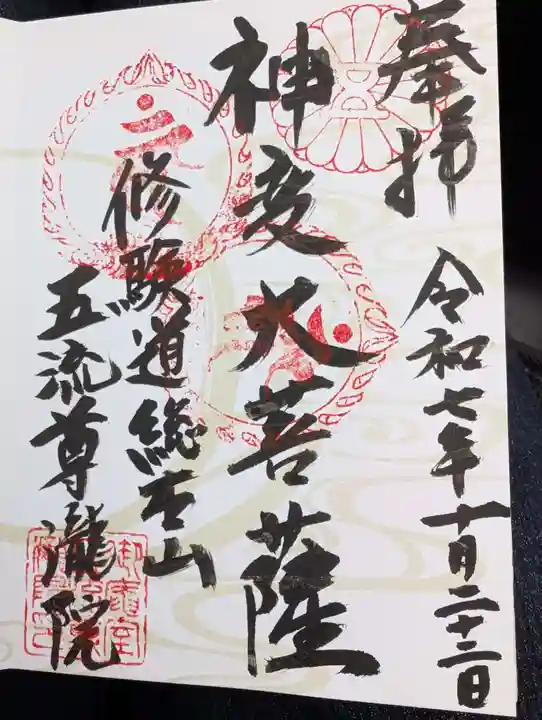 奉拝
令和七年十一月二十二日
神変大菩薩
修験道総本山
五流尊瀧院